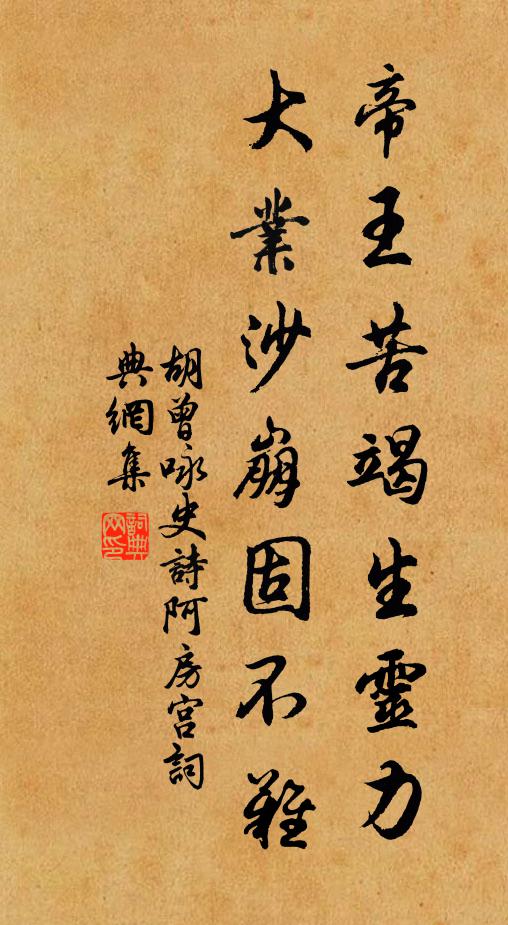 帝王苦竭生靈力
大業沙崩固不難
胡曾咏史詩阿房宫詞
典網集
詞典网印